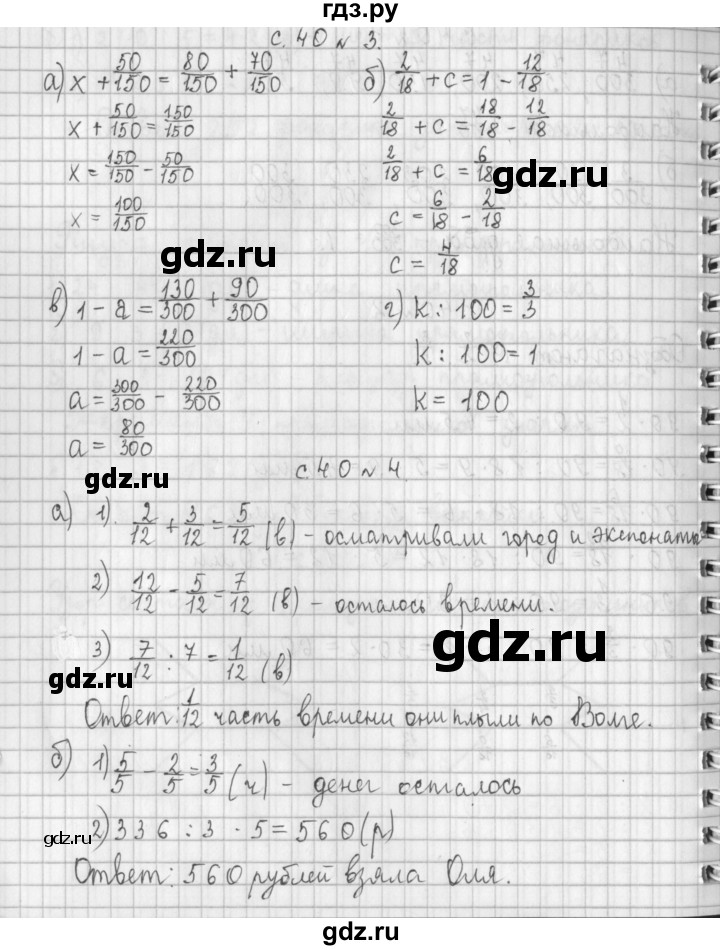 гдз.ру
с. 40 № 3.
а) x + 50/150 = 80/150 + 70/150
x + 50/150 = 150/150
x = 150/150 - 50/150
x = 100/150
б) 2/18 + c = 1 - 12/18
2/18 + c = 18/18 - 12/18
2/18 + c = 6/18
c = 6/18 - 2/18
c = 4/18
gdz.ru
gdz.ru
в) 1 - a = 130/300 + 90/300
1 - a = 220/300
a = 300/300 - 220/300
a = 80/300
г) k : 100 = 3/3
k : 100 = 1
k = 100
с. 40 № 4.
а) 1). 2/12 + 3/12 = 5/12 (в) - осматривали город и экспонаты
2) 12/12 - 5/12 = 7/12 (в) - осталось времени.
3) 7/12 : 7 = 1/12 (в)
gdz.ru
gdz.ru
Ответ: 1/12 часть времени они плыли по Волге.
б) 1) 5/5 - 2/5 = 3/5 (ч) - денег осталось
2) 336 : 3 · 5 = 560 (р)
gdz.ru
gdz.ru
Ответ: 560 рублей взяла Оля.
gdz.ru